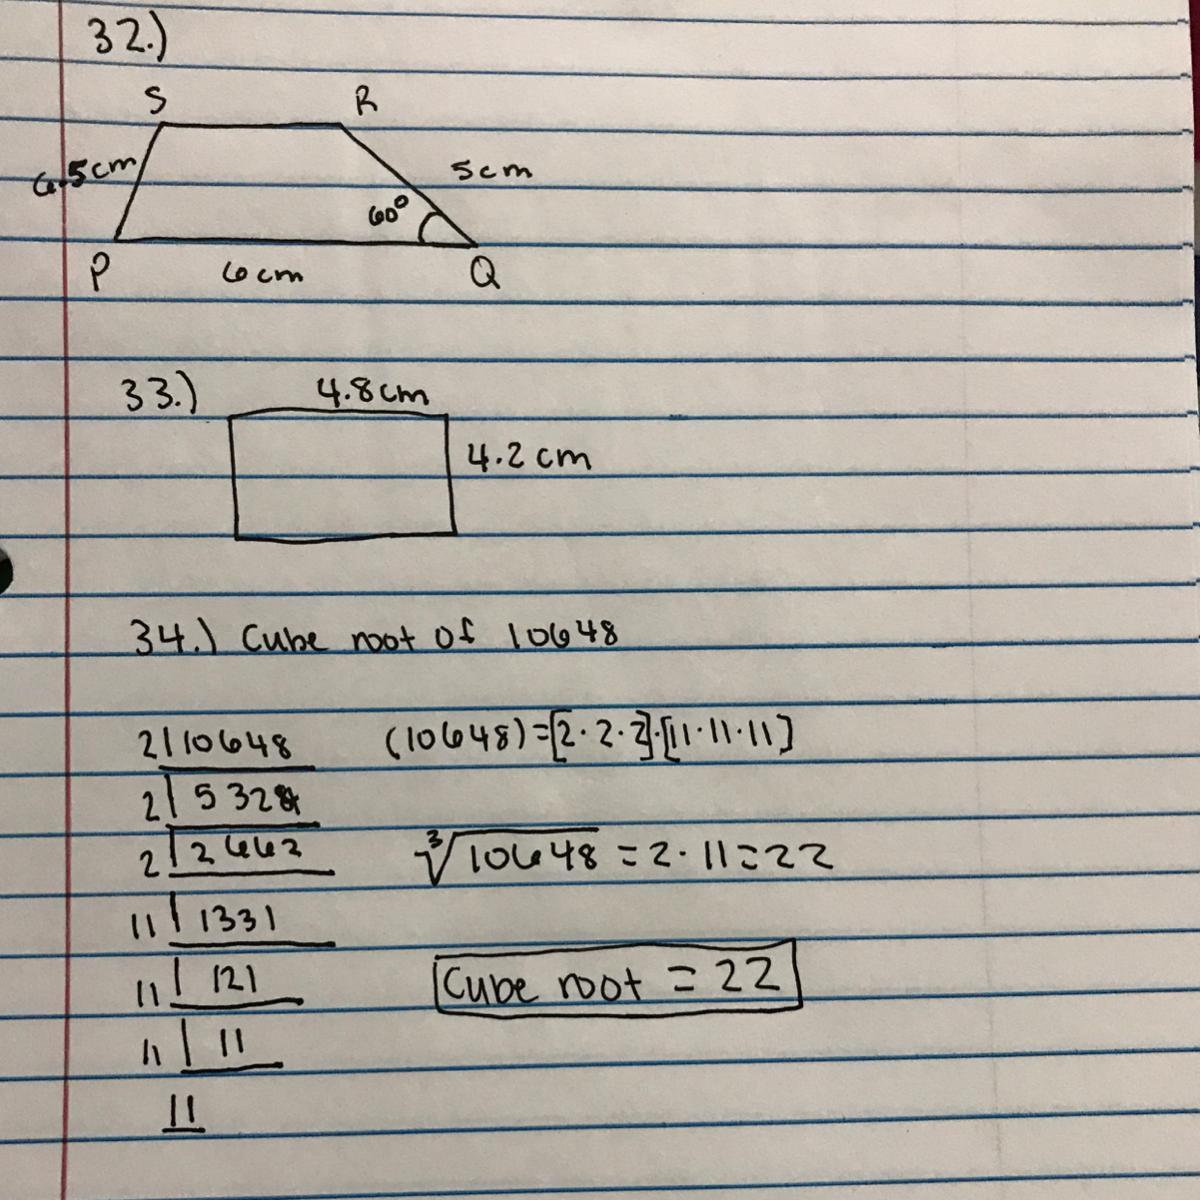 32.)
S R
6.5cm
5cm
60°
P 6cm Q
33.) 4.8cm
4.2 cm
34.) Cube root of 10648
2|10648 (10648)=[2·2·2]·[11·11·11]
2|5324
2|2662 ∛10648 = 2·11=22
11|1331
11|121 Cube root = 22
11|11
11